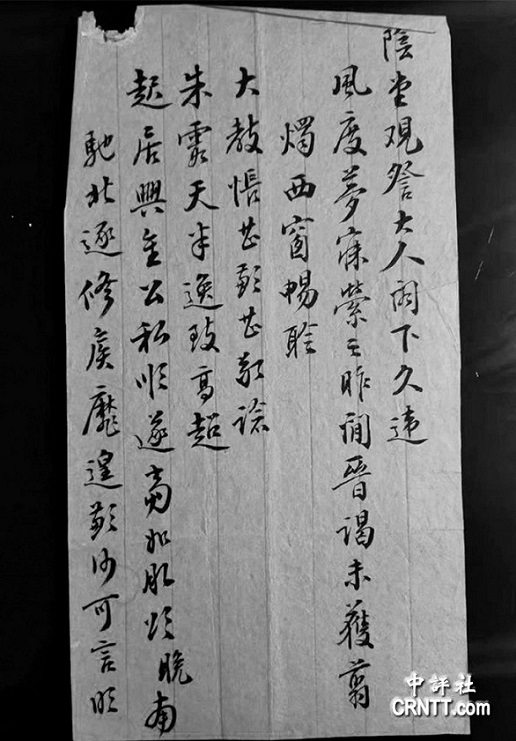 陰堂觀詧大人閣下久違
風度夢寐縈之昨間晉謁未獲翦
燭西窗暢聆
大教悵甚歉甚敬諗
朱霞天半逸致高超
起居興宜公私順遂如肊頌晚南
馳北逐修候靡遑歉何可言
中評社
CRNTT.com